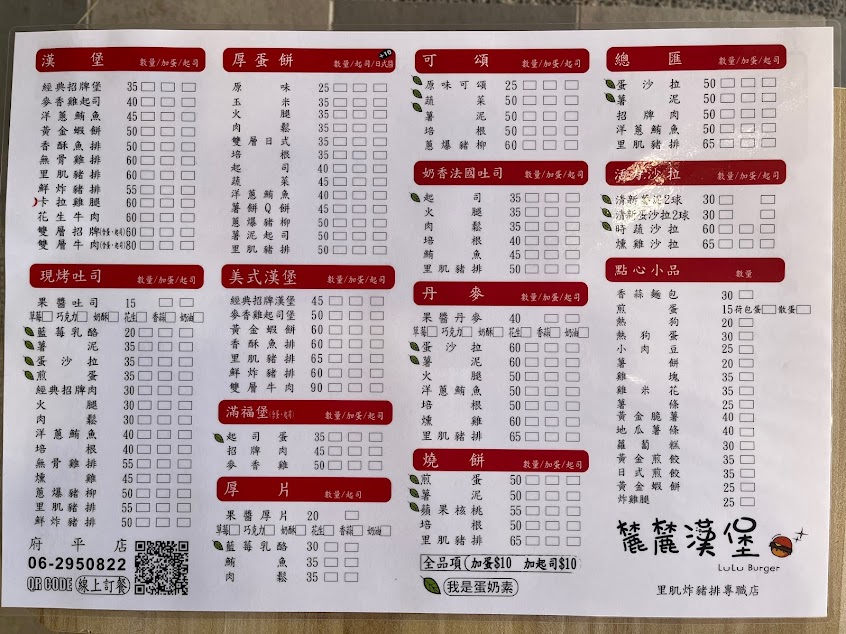 漢堡 數量/加蛋/起司
經典招牌堡 35
麥香雞起司 40
洋蔥鮪魚 45
黃金蝦餅 50
香酥魚排 50
無骨雞排 60
里肌豬排 60
鮮炸豬排 55
卡拉雞腿 60
花生牛肉 60
雙層招牌(含蛋、起司) 60
雙層牛肉(含蛋、起司) 80
現烤吐司 數量/加蛋/起司
果醬吐司 15
草莓 巧克力 奶酥 花生 香蒜 奶油
藍莓乳酪 20
薯泥 30
蛋沙拉 30
煎蛋 30
經典招牌肉 30
火腿 30
肉鬆 30
洋蔥鮪魚 40
培根 40
無骨雞排 55
燻雞 40
蔥爆豬柳 50
里肌豬排 55
鮮炸豬排 50
府平店
06-2950822
QR CODE 線上訂餐
厚蛋餅 數量/起司/日式醬 +10
原味 25
玉米 35
火腿 35
肉鬆 35
雙層日式 35
培根 35
起司 40
蔬菜 45
洋蔥鮪魚 40
薯餅Q餅 45
蔥爆豬柳 50
薯泥起司 50
里肌豬排 50
美式漢堡 數量/加蛋/起司
經典招牌漢堡 45
麥香雞起司堡 50
黃金蝦餅 60
香酥魚排 60
里肌豬排 65
鮮炸豬排 60
雙層牛肉 90
滿福堡(含蛋、起司) 數量/加蛋/起司
起司蛋 35
招牌肉 45
麥香雞 50
厚片 數量/起司
果醬厚片 20
草莓 巧克力 奶酥 花生 香蒜 奶油
藍莓乳酪 30
鮪魚 35
肉鬆 35
可頌 數量/加蛋/起司
原味可頌 25
蔬菜 50
薯泥 50
培根 50
蔥爆豬柳 60
奶香法國吐司 數量/加蛋/起司
起司 35
火腿 35
肉鬆 35
培根 40
鮪魚 45
里肌豬排 50
丹麥 數量/加蛋/起司
果醬丹麥 40
草莓 巧克力 奶酥 花生 香蒜 奶油
蛋沙拉 60
薯泥 60
火腿 50
洋蔥鮪魚 60
培根 50
燻雞 60
里肌豬排 65
燒餅 數量/加蛋/起司
煎蛋 50
薯泥 50
蘋果核桃 55
培根 50
里肌豬排 60
全品項(加蛋$10 加起司$10
我是蛋奶素
總匯 數量/加蛋/起司
蛋沙拉 50
薯泥 50
招牌肉 50
洋蔥鮪魚 50
里肌豬排 65
沙拉 數量/加蛋/起司
清新薯泥2球 30
清新蛋沙拉2球 30
時蔬沙拉 60
燻雞沙拉 65
點心小品 數量
香蒜麵包 30
煎蛋 15 荷包蛋 散蛋
熱狗 20
熱狗蛋 30
小肉豆 25
薯餅 20
雞塊 35
雞米花 35
薯條 25
黃金脆薯 40
地瓜薯條 40
蘿蔔糕 30
黃金煎餃 35
日式煎餃 35
黃金蝦餅 25
炸雞腿 25
麓麓漢堡
LuLu Burger
里肌炸豬排專職店